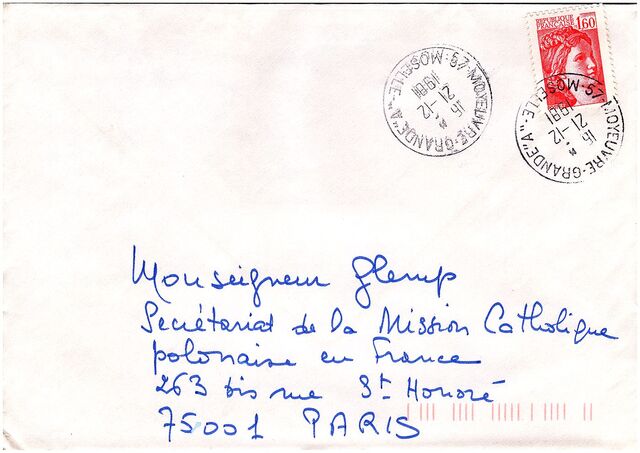 REPUBLIQUE
FRANCAISE 1,60
57-MOYEUVRE-GRANDE "A" MOSELLE
16 *
21-12
1981
57-MOYEUVRE-GRANDE "A" MOSELLE
16 *
21-12
1981
Monseigneur Glemp
Secrétariat de la Mission Catholique
polonaise en France
263 bis rue St Honoré
75001 PARIS